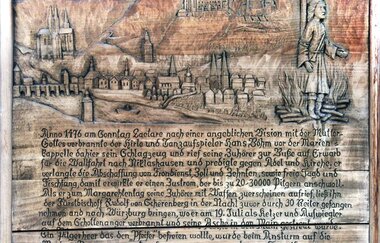 Anno 1476 am Sonntag Laetare nach einer angeblichen Vision mit der Mutter-
Gottes verbrannte der Hirte und Tanzaufspieler Hans Böhm vor der Marien-
Cappelle dahier sein Schlagzeug und rief seine Zuhörer zur Buße auf. Er warb
für die Wallfahrt nach Niklashausen und predigte gegen Adel und Kirche: er
verlangte die Abschaffung von Frondienst, Zoll und Zehnten, sowie freie Jagd und
Fischfang. damit erzielte er einen Zustrom, der bis zu 20-30000 Pilgern anschwoll.
Als er zum Margarethentag seine Zuhörer mit Waffen zu erscheinen aufrief, ließ ihn
der Fürstbischof Rudolf von Scherenberg in der Nacht zuvor durch 30 Reiter gefangen
nehmen und nach Würzburg bringen, wo er am 19. Juli als Ketzer und Aufwiegler
auf dem Schottenanger verbrannt und seine Asche in den Main gestreut wurde.
Ein Pilgerheer das den Pfeifer befreien wollte, wurde beim Ansturm auf die